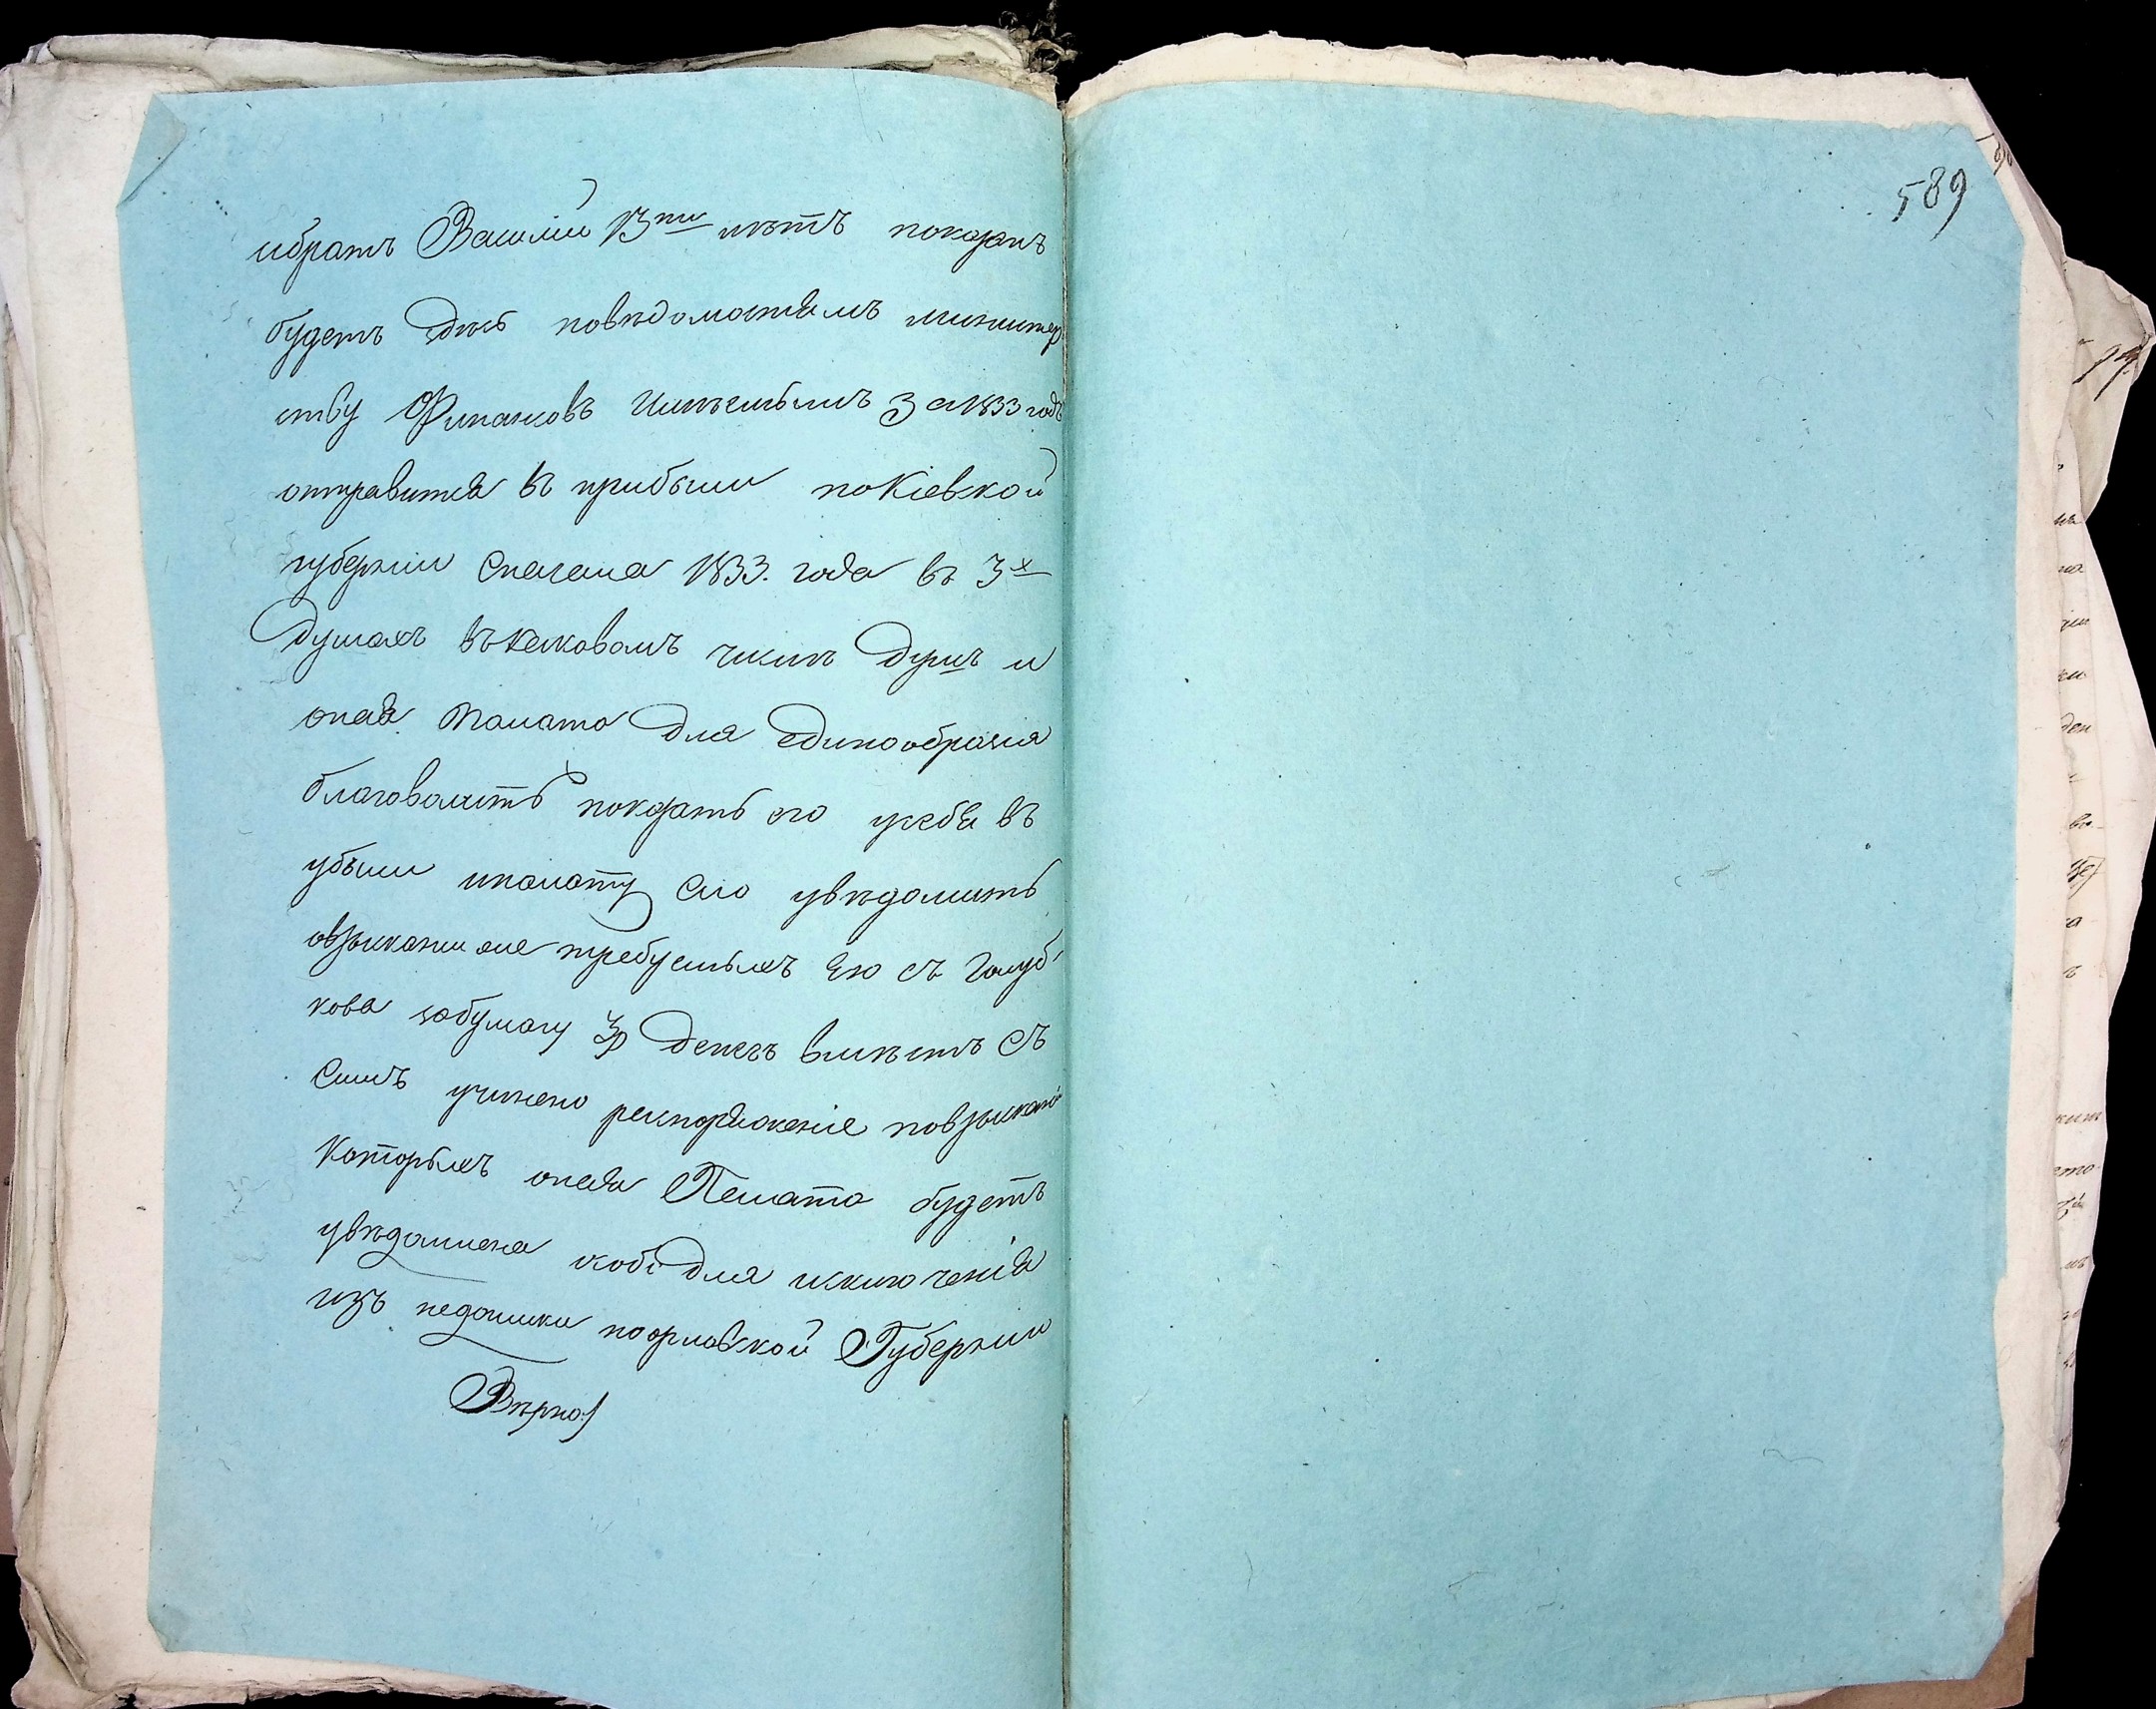 589
ибратъ Василій 13ти летъ показанъ
будетъ здесь поведомостямъ министер
ству Финансовъ имѣемымъ За 1833 годъ
отправится въ прибыли по Кіевской
губерніи Сначала 1833. года въ 3х
душахъ въ каковомъ числѣ душъ и
оная Палата для единообразія
благоволитъ показать его усебя въ
убыли ипалату Сію увѣдомить
овзысканіи же требуемыхъ Ею съ Голуб
кова забумагу 3р денегъ вместѣ съ
Симъ учинено распоряженіе повзысканіи
Которыхъ оная Палата будетъ
увѣдомлена кобъ для исключенія
изъ недоимки поорловской Губерніи
Вѣрно